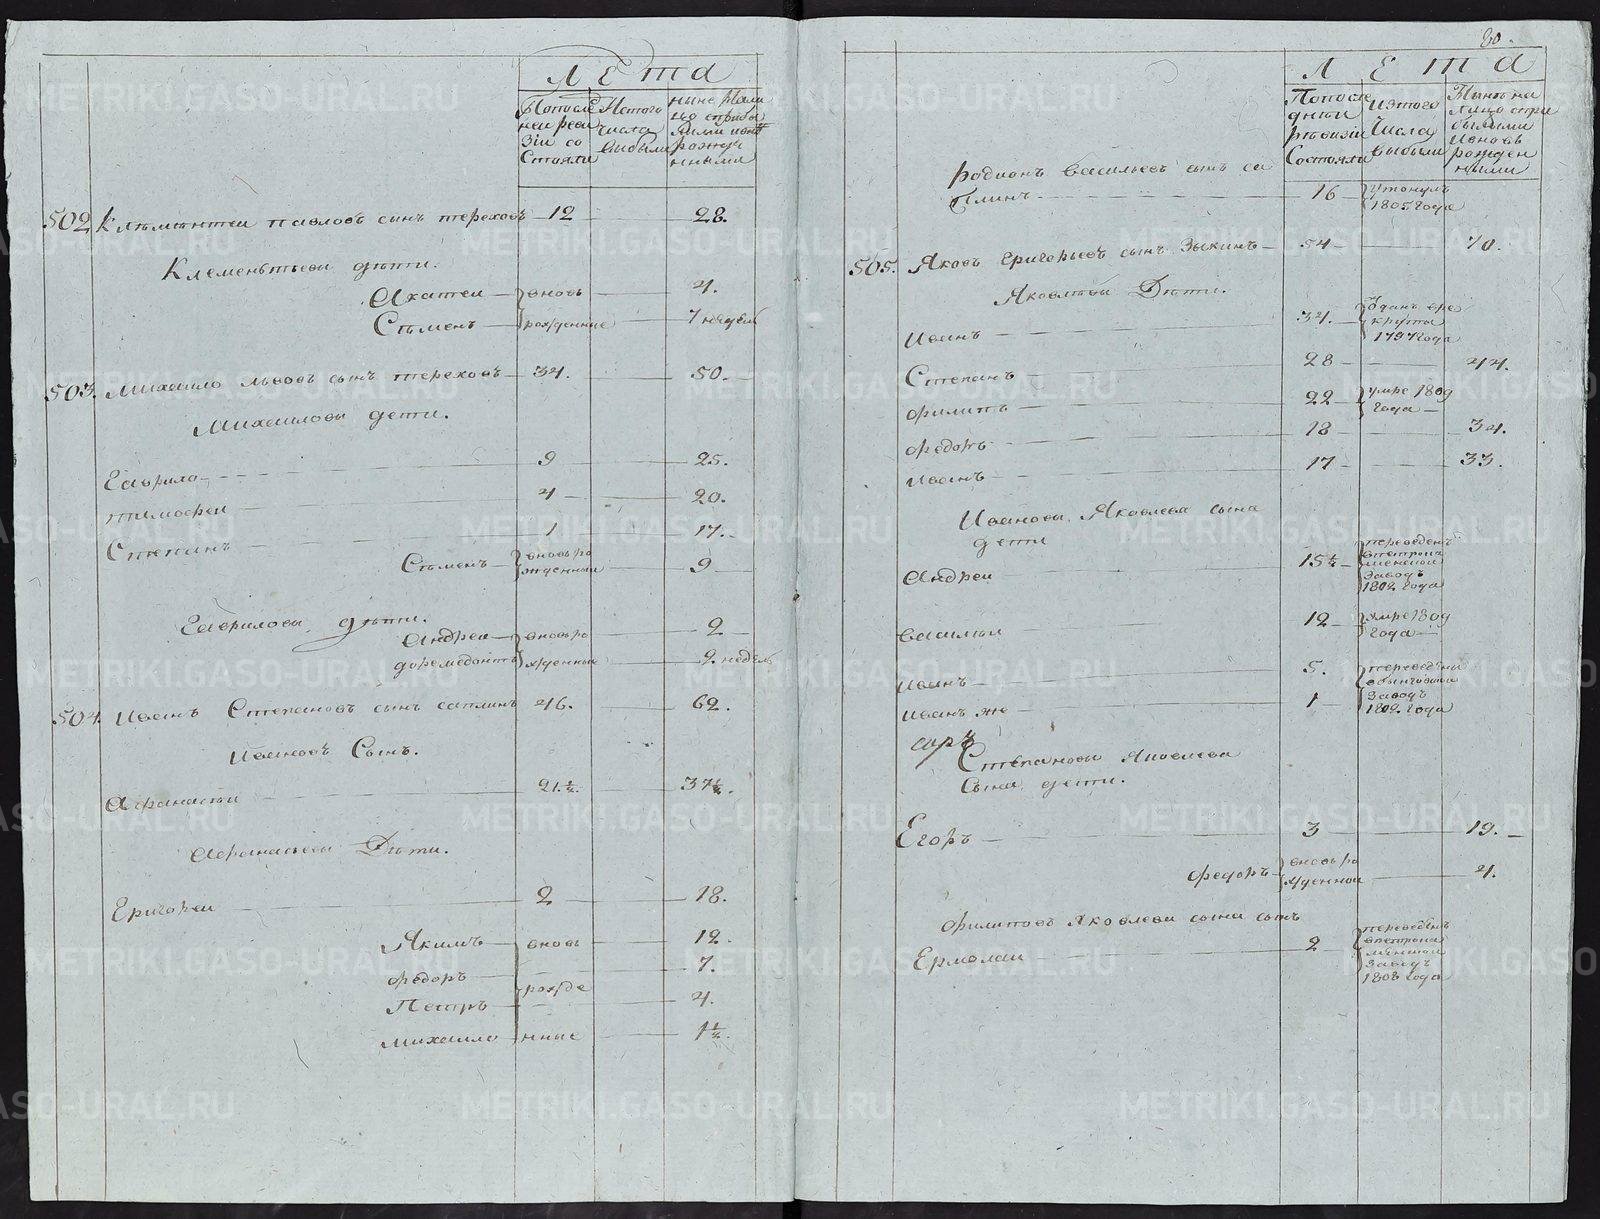 Лета
Попосле
ней реви
зіи со
стояли
Изтого
числа
выбыли
ныне нали
цо
рожде
нными
502 Климентеи Павловъ сынъ терехов 12 28.
Клементьевы дети.
вновь 4.
Семенъ рожденные 7 недель
503. Михаило Львовъ сынъ тереховъ 34. 50.
Михаиловы дети.
Гаврило 9 25.
тимофеи 4 20.
Степанъ 1 17.
Семенъ вновь ро
жденныи 9
Гавриловы дети.
Андреи вновь ро 2
доремедонтъ жденные 9. недель
504. Иванъ Степановъ сынъ саплинъ 46. 62.
Ивановъ Сынъ.
Афанасеи 21½. 37½.
Афанасьевы Дети.
Григореи 2 18.
Якимъ вновь 12.
федоръ 7.
Петръ рожде 4.
михаило нные 1½.
80.
Лета
Попосле
дней
ревизіи
Состояли
Изтого
Числа
выбыли
Ныне на
лицо с при
былыми
ивновь
рожден
ными
родионъ васильевъ сынъ са
плинъ 16 утонулъ
1805. года
505. Яковъ Григорьевъ сынъ Зыкинъ 54 70.
Яковлевы Дети.
Иванъ 34. Отданъ вре
круты
1797 года
Степанъ 28 44.
филипъ 22 умре 1809
года
федоръ 18 34.
иванъ 17 33.
Ивановы Яковлева сына
дети
Андреи 15½ переведенъ
заводъ
1802 года
василеи 12 умре 1809
года
иванъ 5. переведены
заводъ
1802. года
иванъ же 1
Степановы Яковлева
Сына дети.
Егоръ 3 19.
федоръ вновь ро
жденнои 4.
филиповъ Яковлева сына сынъ
Ермолаи 2 переведенъ
заводъ
1808 года
METRIKI.GASO-URAL.RU